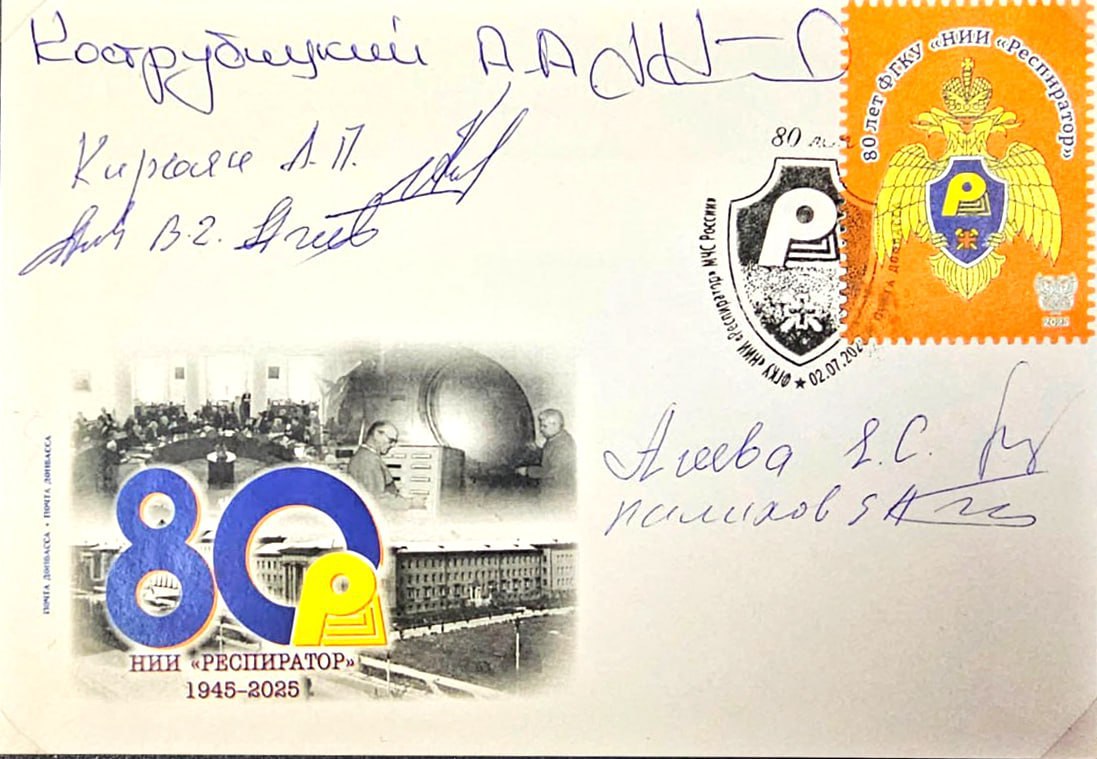 Кострубицкий А.А
80 лет ФГКУ «НИИ «Респиратор»
Кирьян А.П.
80 лет
ФГКУ «НИИ «Респиратор» МЧС России»
02.07.202
2025
В.Г. Агеев
Агеева Е.С.
Палихов
ПОЧТА ДОНБАССА • ПОЧТА ДОНБАССА
80
НИИ «РЕСПИРАТОР»
1945–2025